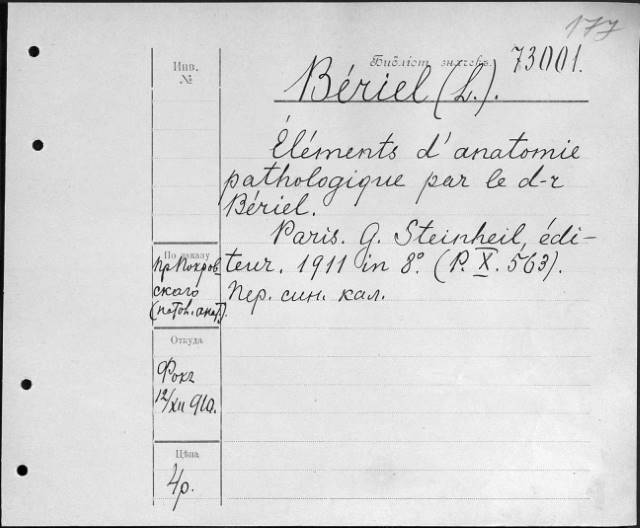 177
Инв.
№
Библіот. значекъ.
73001.
Bériel (L.).
Éléments d'anatomie
pathologique par le d-r
Bériel.
Paris. G. Steinheil, édi-
teur. 1911 in 8º. (P. X. 563).
Пер. син. кал.
По заказу
пр Покров-
скаго
(патол. анат.).
Откуда
Фокъ
12/XII 910.
Цѣна
4р.